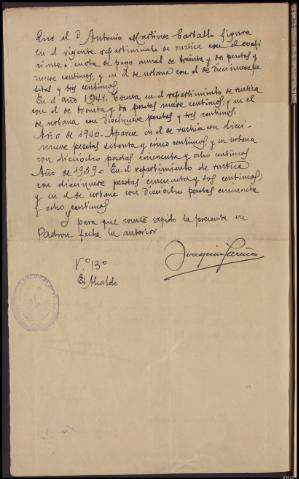 Que el D Antonio Martinez Carballo figura
en el vigente repartimiento de rustica con el
cuota de pago anual de treinta y dos pesetas y
nueve centimos, y en el de urbana con el de diecinueve pe
setas y tres centimos.
En el año 1941. Consta en el repartimiento de rustica
con el de treinta y dos pesetas nueve centimos, y en el
de urbana con diecinueve pesetas y tres centimos.
Año de 1940.- Aparece en el de rustica con dieci
nueve pesetas setenta y cinco centimos, y en urbana
con dieciocho pesetas cincuenta y ocho centimos
Año de 1939.- En el repartimiento de rustica
con diecinueve pesetas cincuenta y tres centimos;
y en el de urbana con dieciocho pesetas cincuenta
y ocho centimos
y para que conste expido la presente en
Padron fecha la anterior
Joaquin
Vº Bº
El Alcalde